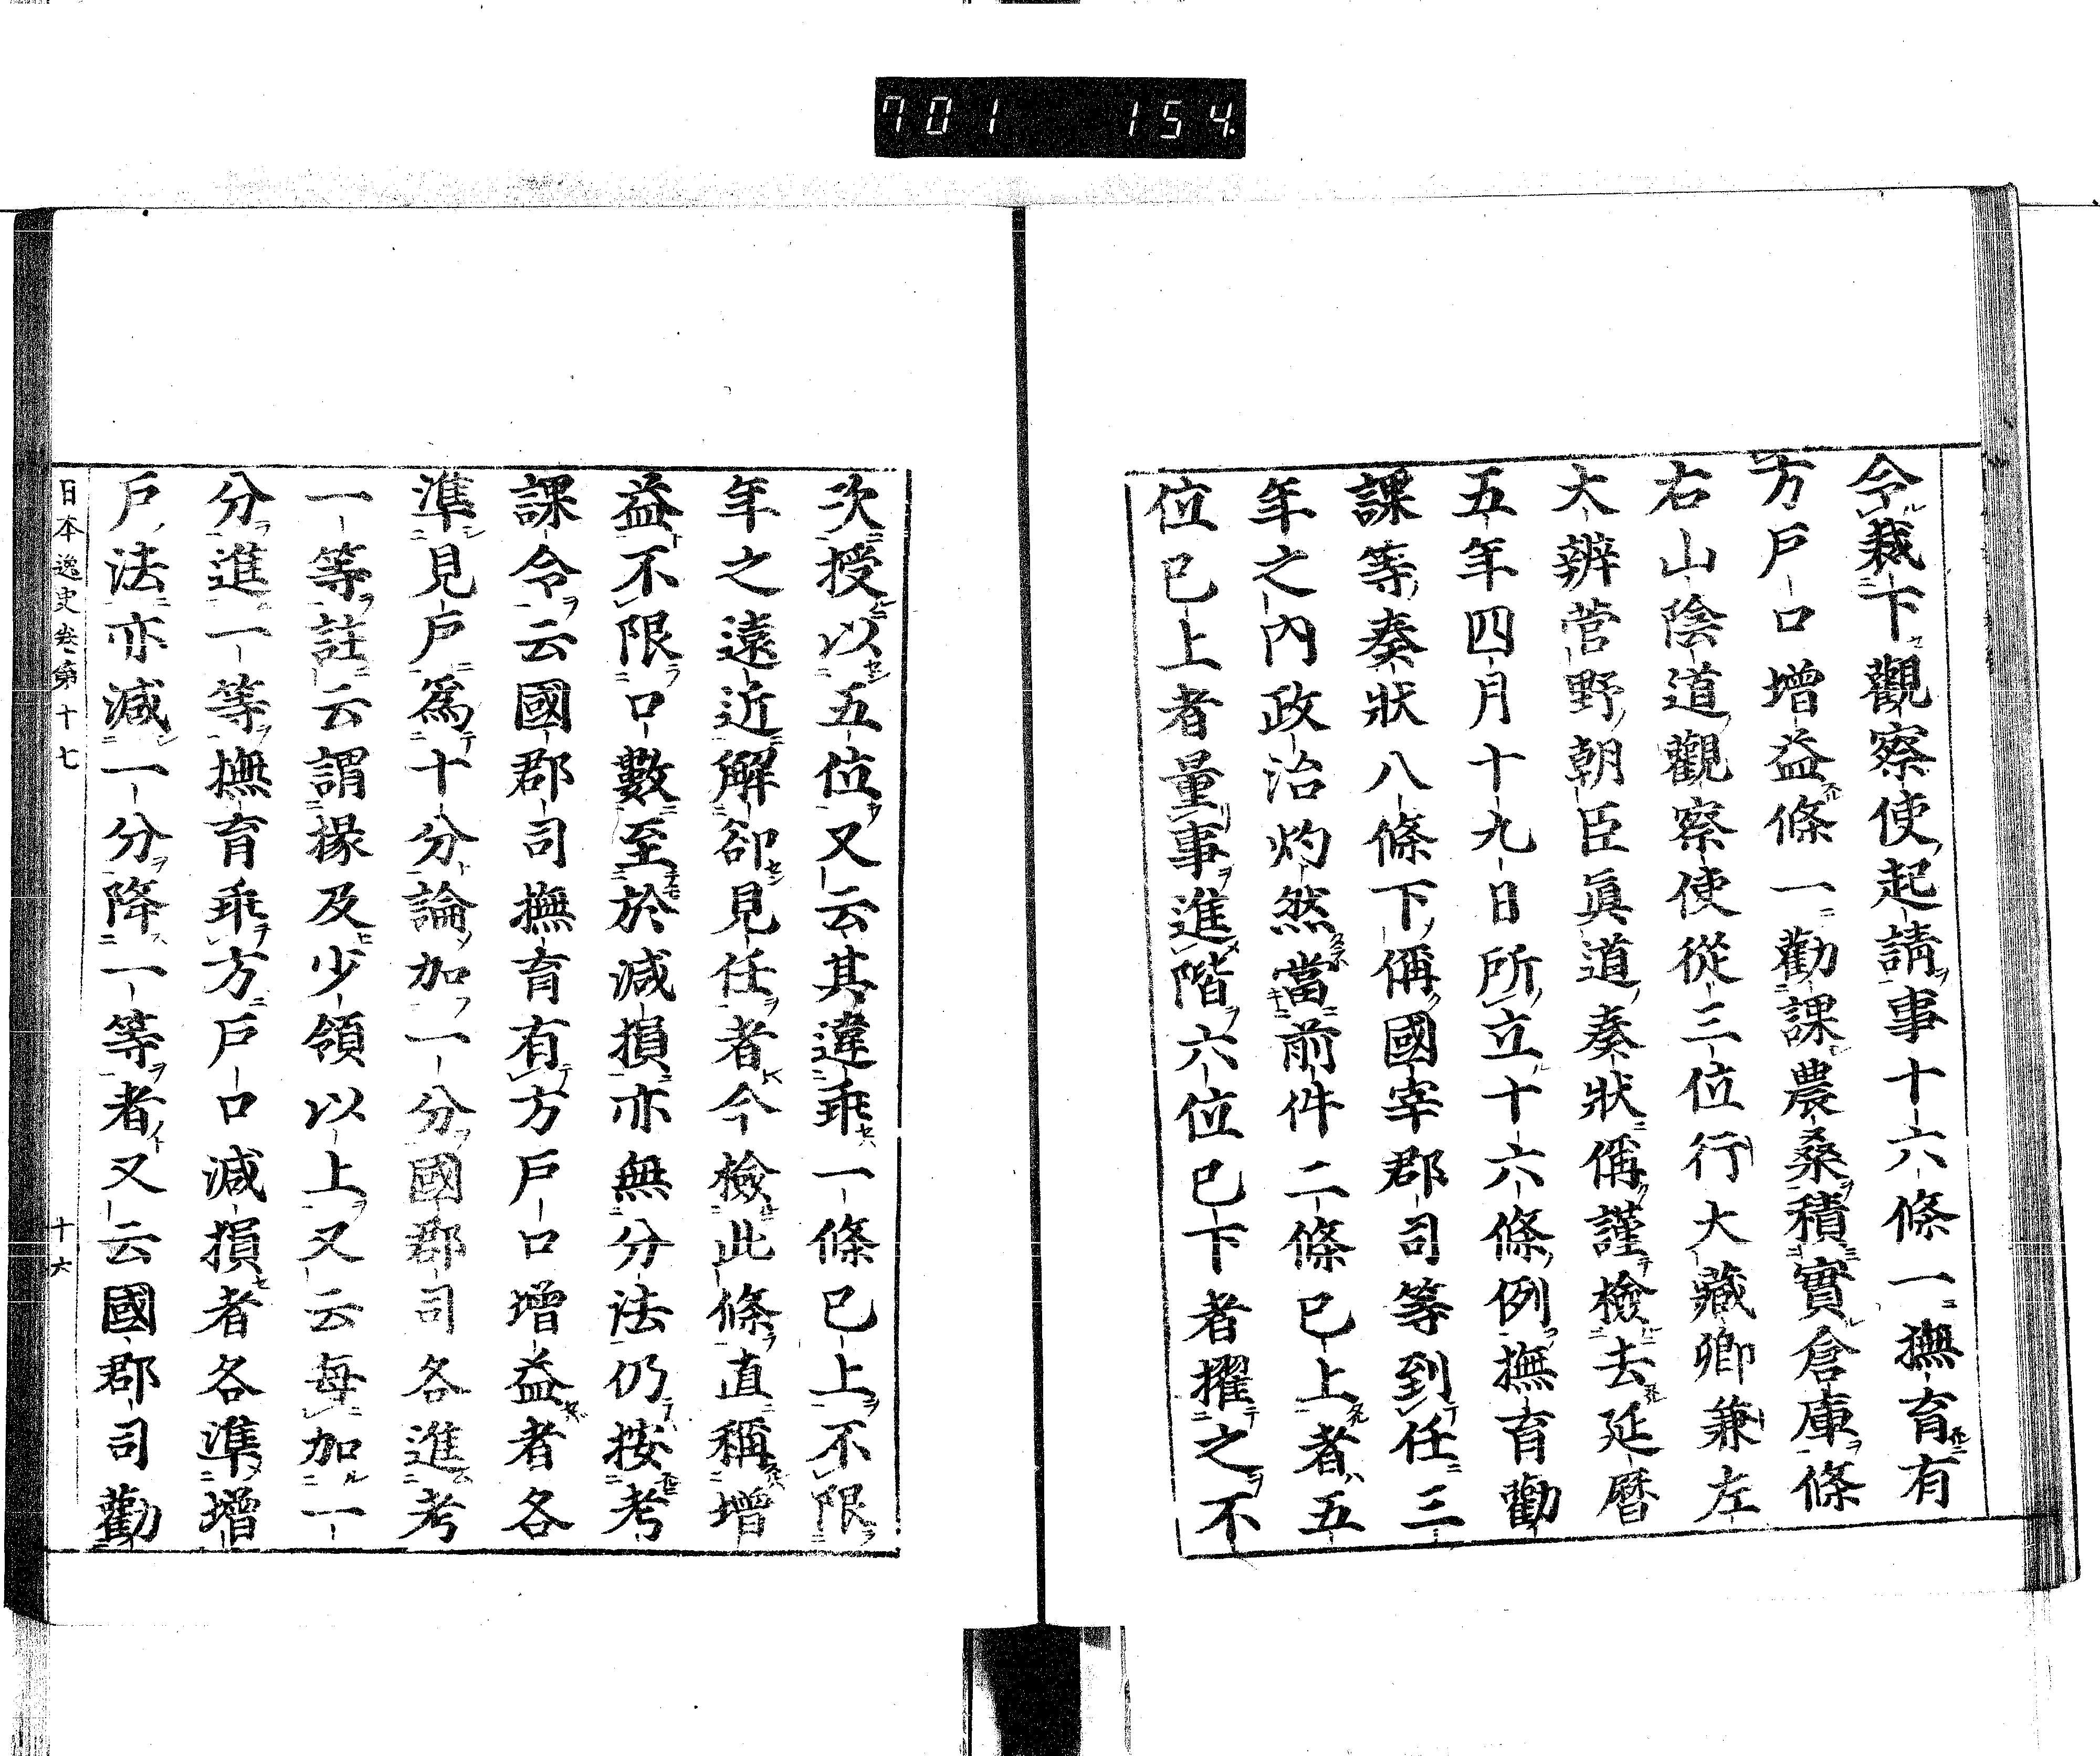 701 154
令裁下觀察使起請事十六條一撫育有
方戸口增益條一勸課農桑積實倉庫條
右山陰道觀察使從三位行大藏卿兼左
大辨菅野朝臣眞道奏狀偁謹檢去延曆
五年四月十九日所立十六條例撫育勸
課等奏狀八條下偁國宰郡司等到任三
年之內政治灼然當前件二條已上者五
位已上者量事進階六位已下者擢之不
次授以五位又云其違乖一條已上不限
年之遠近解卻見任者今檢此條直稱增
益不限口數至於減損亦無分法仍按考
課令云國郡司撫育有方戸口增益者各
準見戸爲十分論加一分國郡司各進考
一等註云謂掾及少領以上又云每加一
分進一等撫育乖方戸口減損者各準增
戸法亦減一分降一等者又云國郡司勸
日本逸史卷第十七 十六